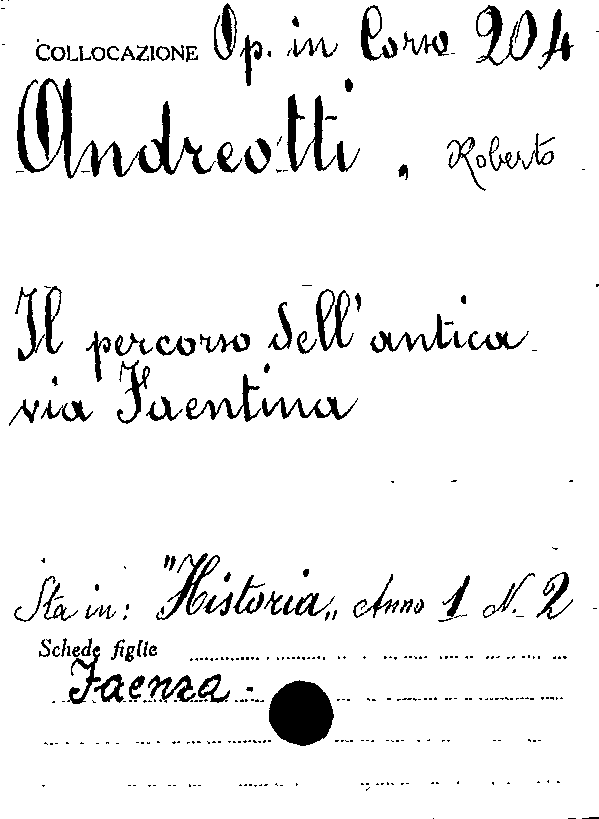 COLLOCAZIONE Op. in Corso 204
Andreotti, Roberto
Il percorso dell'antica
via Faentina
Sta in: "Historia" Anno 1 N. 2
Schede figlie
Faenza -